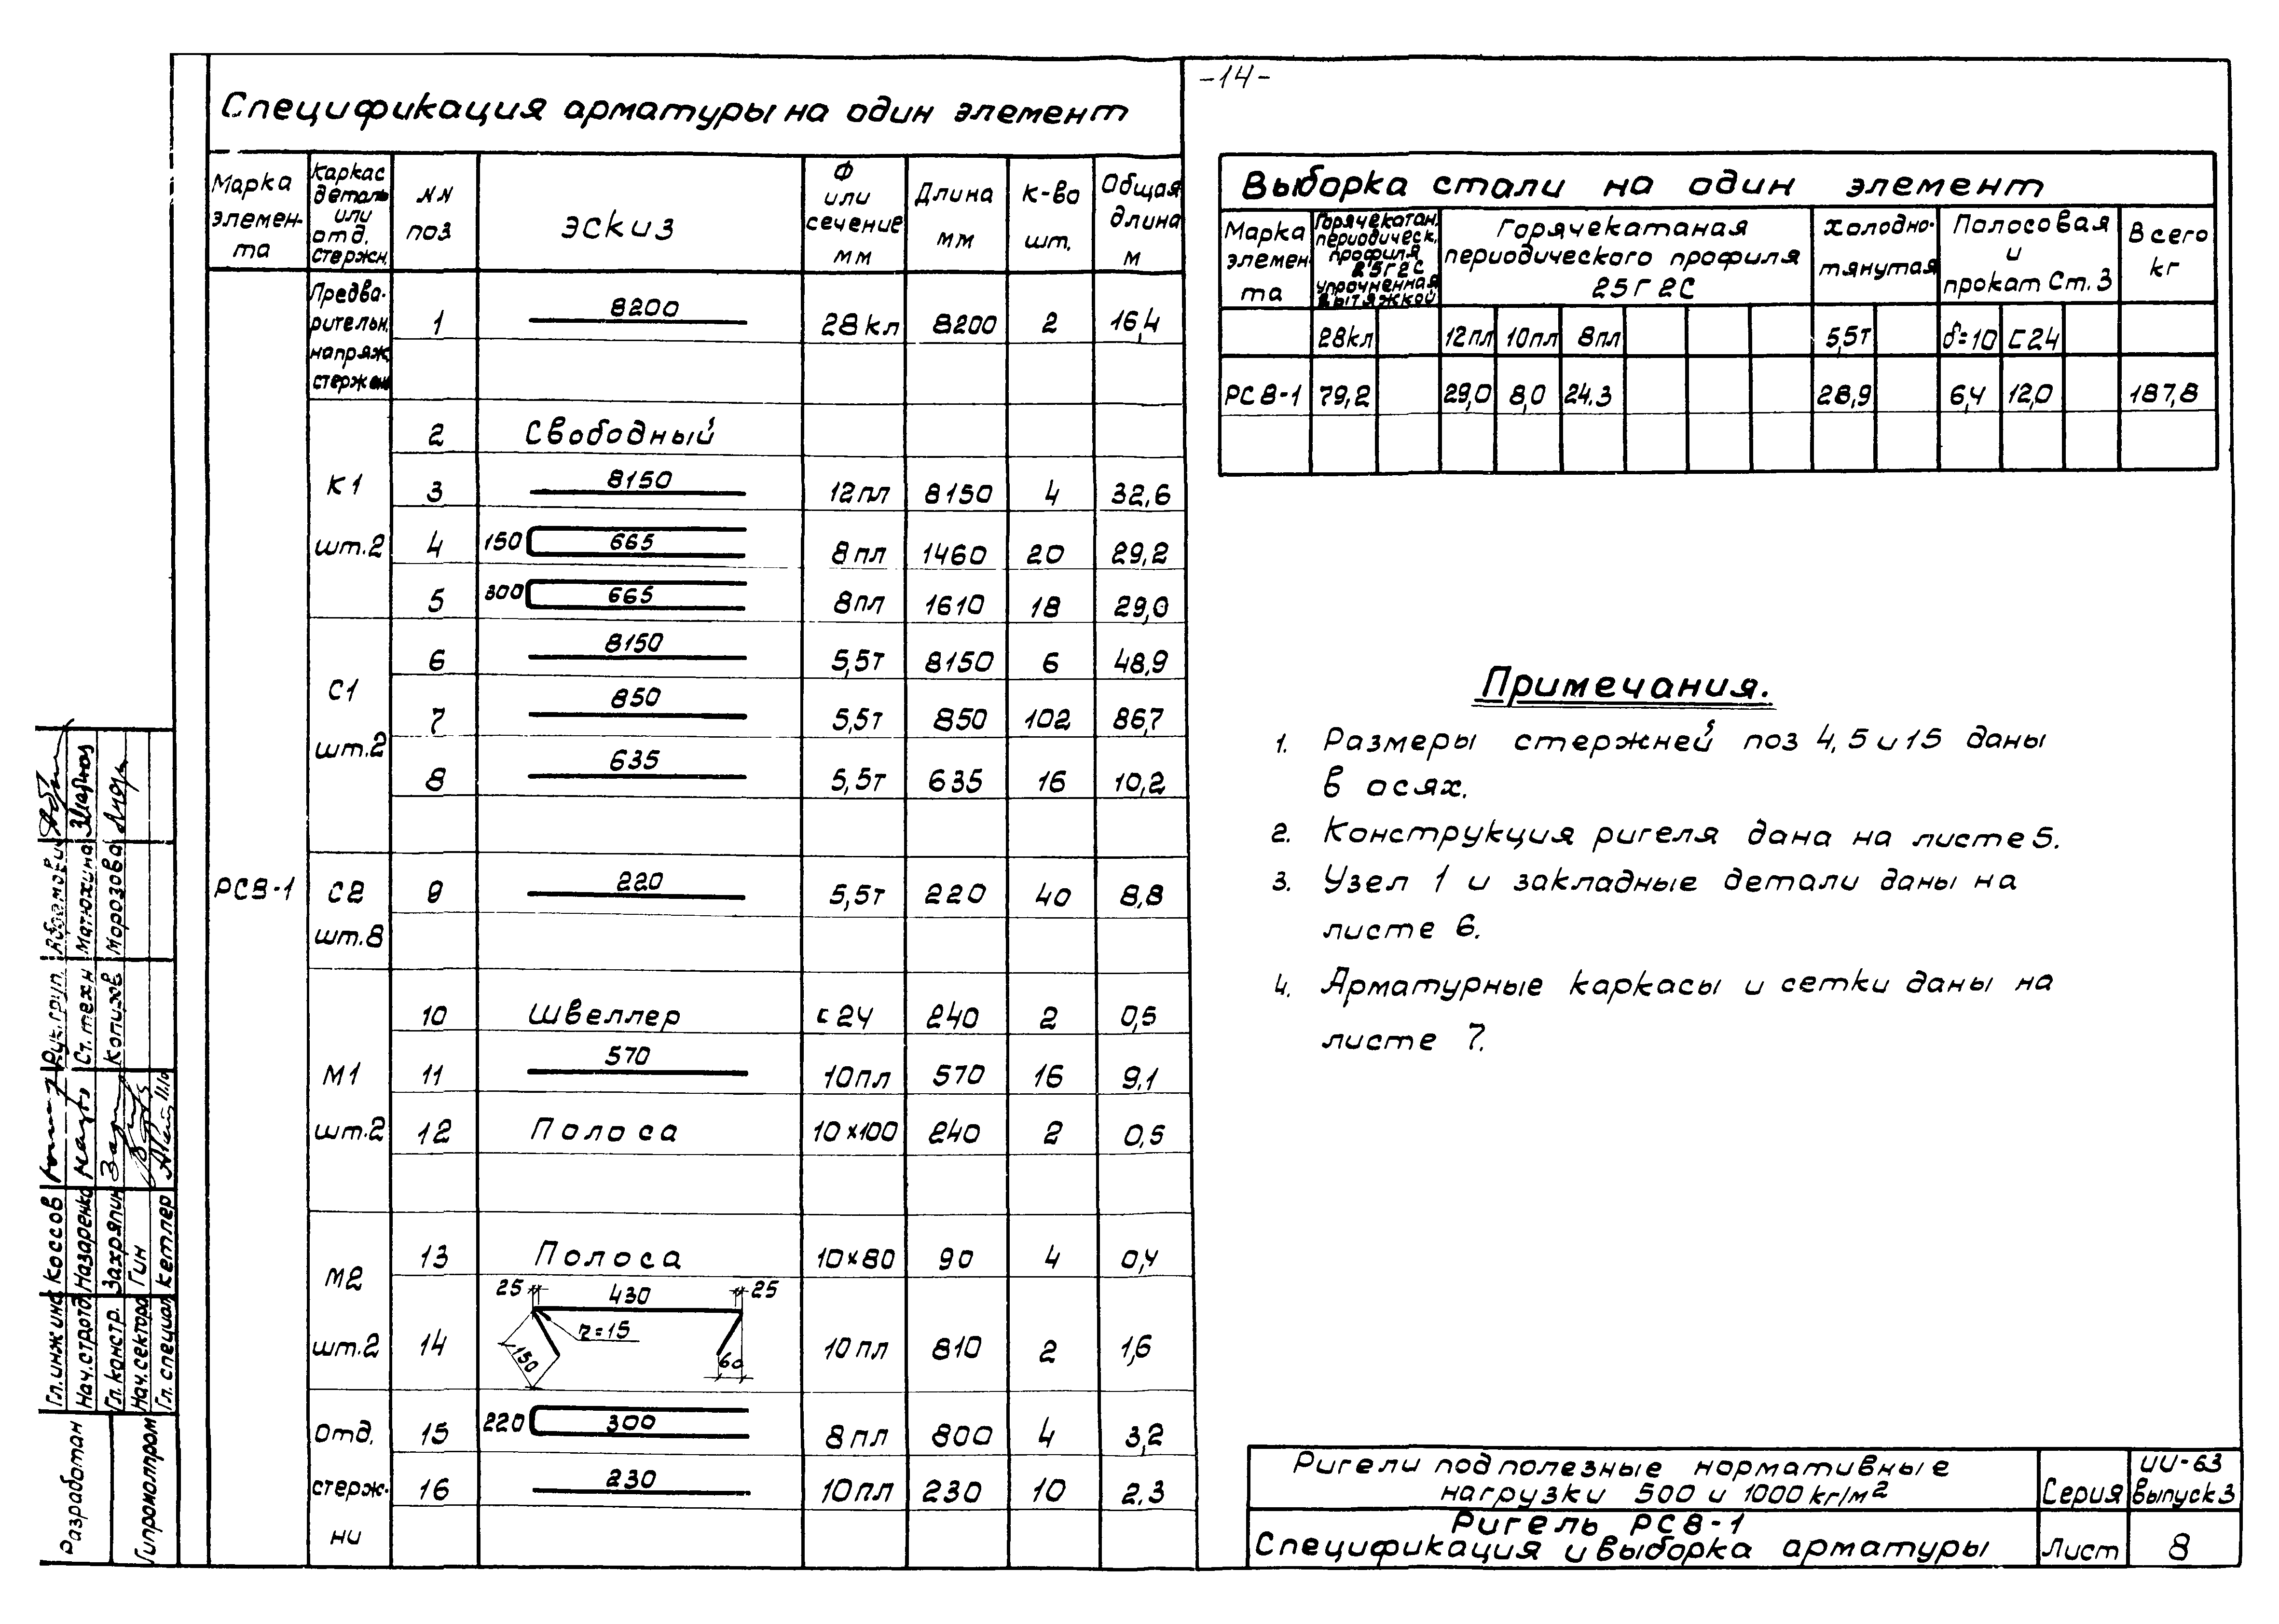 -14-
Спецификация арматуры на один элемент
Марка элемен- та | Каркас деталь или отд. стержн. | NN поз | эскиз | Ф или сечение мм | Длина мм | к-во шт. | Общая длина м
Предва- рительн. напряж. стержень | 1 | 8200 | 28кл | 8200 | 2 | 16,4
К1 шт.2 | 2 | Свободный
3 | 8150 | 12пл | 8150 | 4 | 32,6
4 | 150 665 | 8пл | 1460 | 20 | 29,2
5 | 300 665 | 8пл | 1610 | 18 | 29,0
С1 шт.2 | 6 | 8150 | 5,5т | 8150 | 6 | 48,9
7 | 850 | 5,5т | 850 | 102 | 86,7
8 | 635 | 5,5т | 635 | 16 | 10,2
РС8-1 | С2 шт.8 | 9 | 220 | 5,5т | 220 | 40 | 8,8
М1 шт.2 | 10 | Швеллер | С24 | 240 | 2 | 0,5
11 | 570 | 10пл | 570 | 16 | 9,1
12 | Полоса | 10×100 | 240 | 2 | 0,5
М2 шт.2 | 13 | Полоса | 10×80 | 90 | 4 | 0,4
14 | 25 430 25 r=15 150 60 | 10пл | 810 | 2 | 1,6
Отд. стерж- ни | 15 | 220 300 | 8пл | 800 | 4 | 3,2
16 | 230 | 10пл | 230 | 10 | 2,3
Выборка стали на один элемент
Марка элемен та | Горячекатан. периодическ. профиля 25Г2С упрочненная вытяжкой | Горячекатаная периодического профиля 25Г2С | Холодно- тянутая | Полосовая и прокат Ст.3 | Всего кг
28кл | 12пл | 10пл | 8пл | 5,5т | δ=10 | С24
РС8-1 | 79,2 | 29,0 | 8,0 | 24.3 | 28,9 | 6,4 | 12,0 | 187,8
Примечания.
1. Размеры стержней поз 4, 5 и 15 даны
в осях.
2. Конструкция ригеля дана на листе 5.
3. Узел 1 и закладные детали даны на
листе 6.
4. Арматурные каркасы и сетки даны на
листе 7.
Ригели под полезные нормативные
нагрузки 500 и 1000 кг/м2
Серия
ИИ-63
выпуск 3
Ригель РС8-1
Спецификация и выборка арматуры
Лист
8
Разработан
Гипромолпром
Гл.инж.инс Коссов
Нач.стротд. Назаренко
Гл.констр. Захряпин
Нач.сектора Гин
Гл.специал. Кетлер
Рук.груп. Абрамович
Ст.техн Матюхина
Копиров Морозова